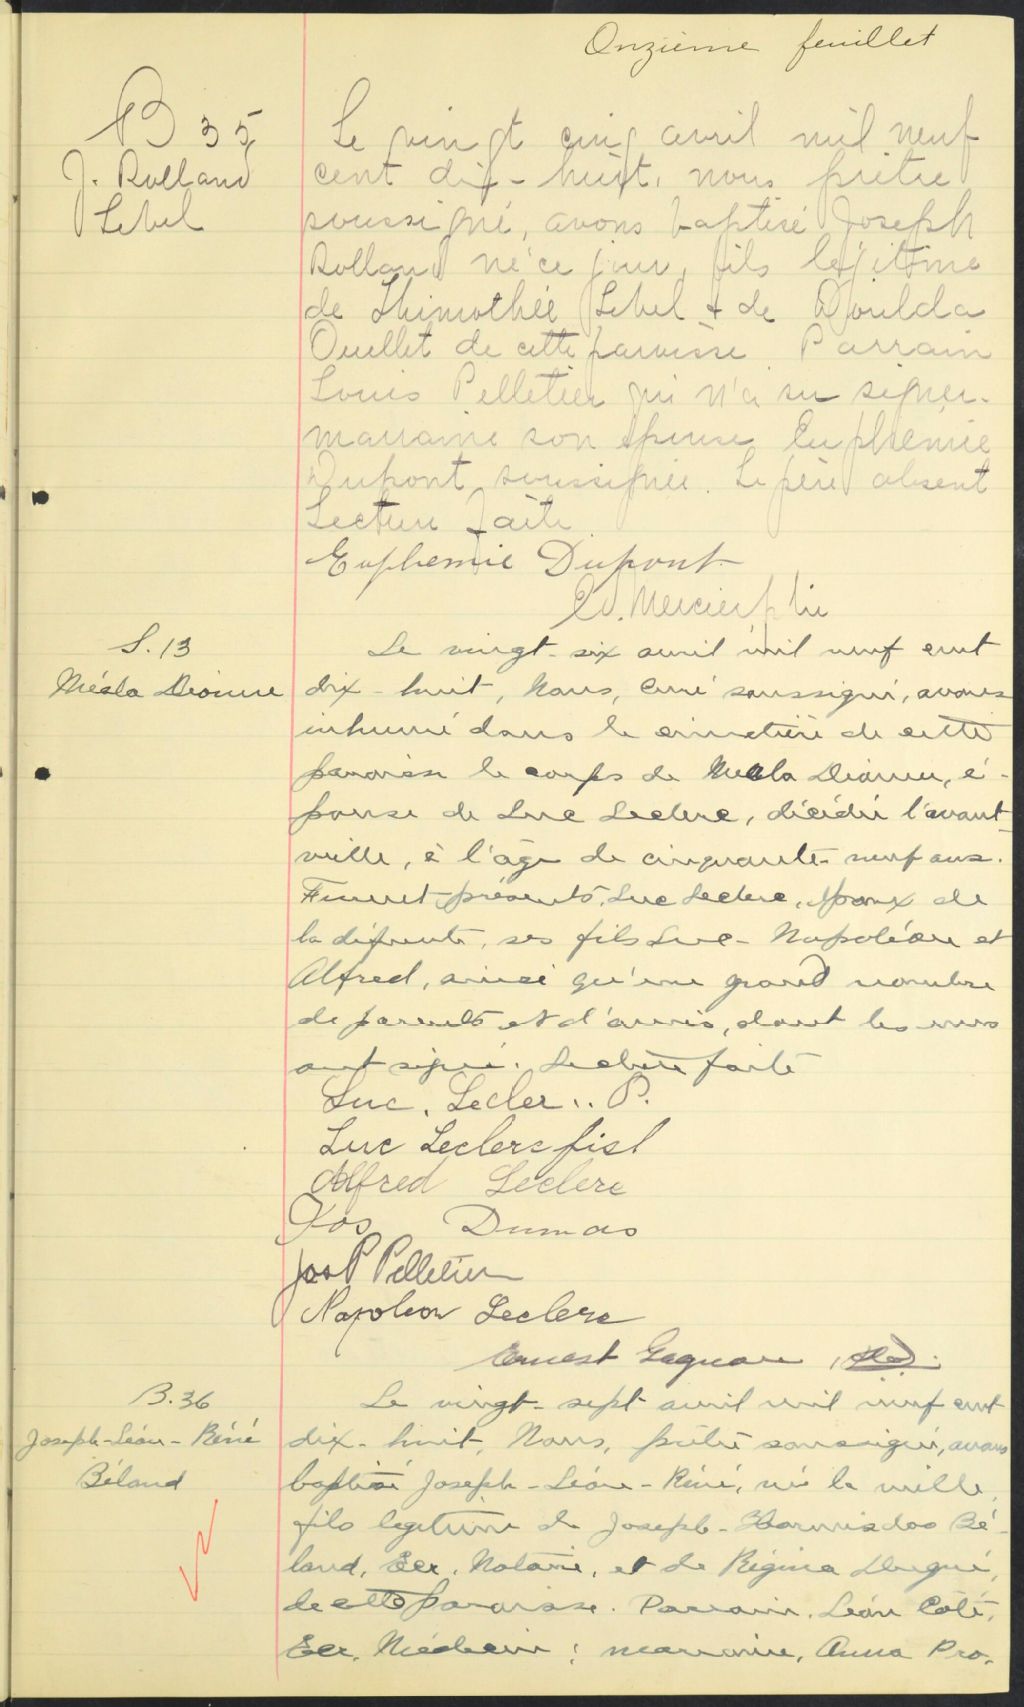 Onzième feuillet
B 35
J. Rolland
Lebel
Le vingt cinq avril mil neuf
cent dix-huit, nous prêtre
soussigné, avons baptisé Joseph
Rolland né ce jour, fils légitime
de Thimothée Lebel & de
Ouellet de cette paroisse Parrain
Louis Pelletier qui n'a su signer.
marraine son épouse Euphémie
Dupont soussignée. Le père absent
Lecture faite
Euphemie Dupont
Ed. Mercier ptre
S. 13
Dionne
Le vingt-six avril mil neuf cent
dix-huit, Nous, Curé soussigné, avons
inhumé dans le cimetière de cette
paroisse le corps de Dionne, é-
pouse de Luc Leclerc, décédée l'avant-
veille, à l'âge de cinquante-neuf ans.
Furent présents, Luc Leclerc, époux de
la défunte, ses fils Luc-Napoléon et
Alfred, ainsi qu'un grand nombre
de parents et d'amis, dont les uns
ont signé. Lecture faite
Luc. Lecler.. P.
Luc Leclerc fisl
Alfred Leclerc
Jos Dumas
Jos P Pelletier
Napoleon Leclerc
Ernest Gagnon,
B. 36
Joseph-Léon-Réné
Béland
Le vingt-sept avril mil neuf cent
dix-huit, Nous, prêtre soussigné, avons
baptisé Joseph-Léon-Réné, né la veille,
fils légitime de Joseph-Hormisdas Bé-
land, Ecr. Notaire, et de Régina
de cette paroisse. Parrain, Léon Côté,
Ecr. Médecin ; marraine, Anna Pro-